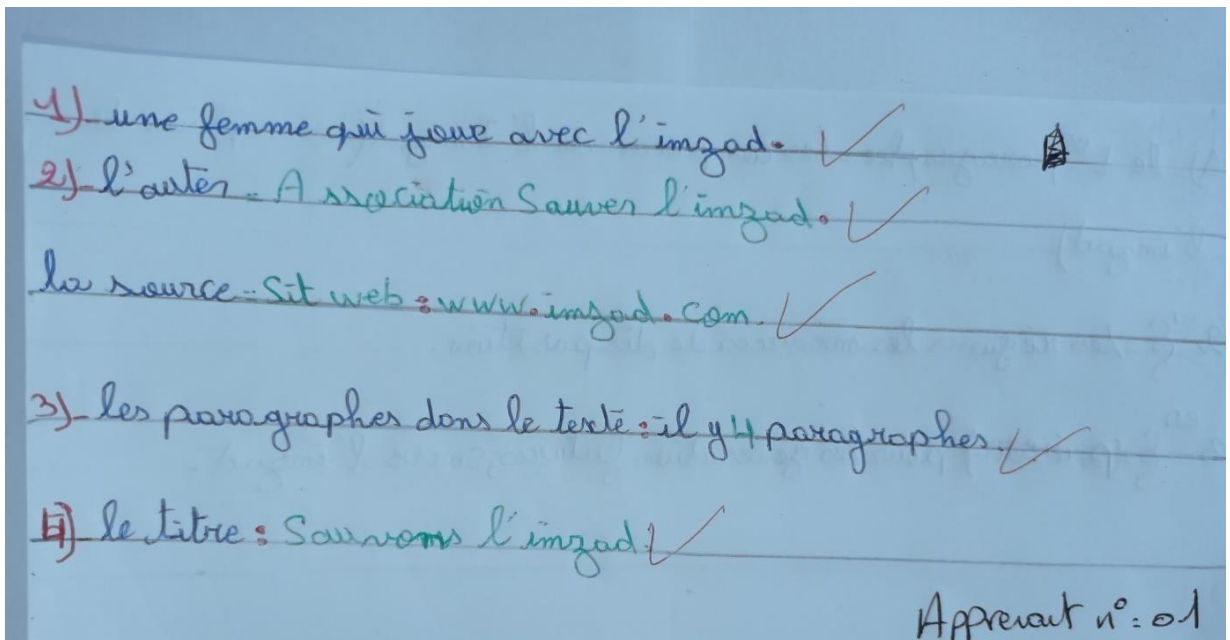 1) une femme qui joue avec l'imzad.
2)-l'auter-Association Sauver l'imzad.
la source-Sit web:www.imzad.com.
3)-les paragraphes dans le texte:il y 4 paragraphes.
4) le titre: Sauvons l'imzad.
Apprenant n°:01